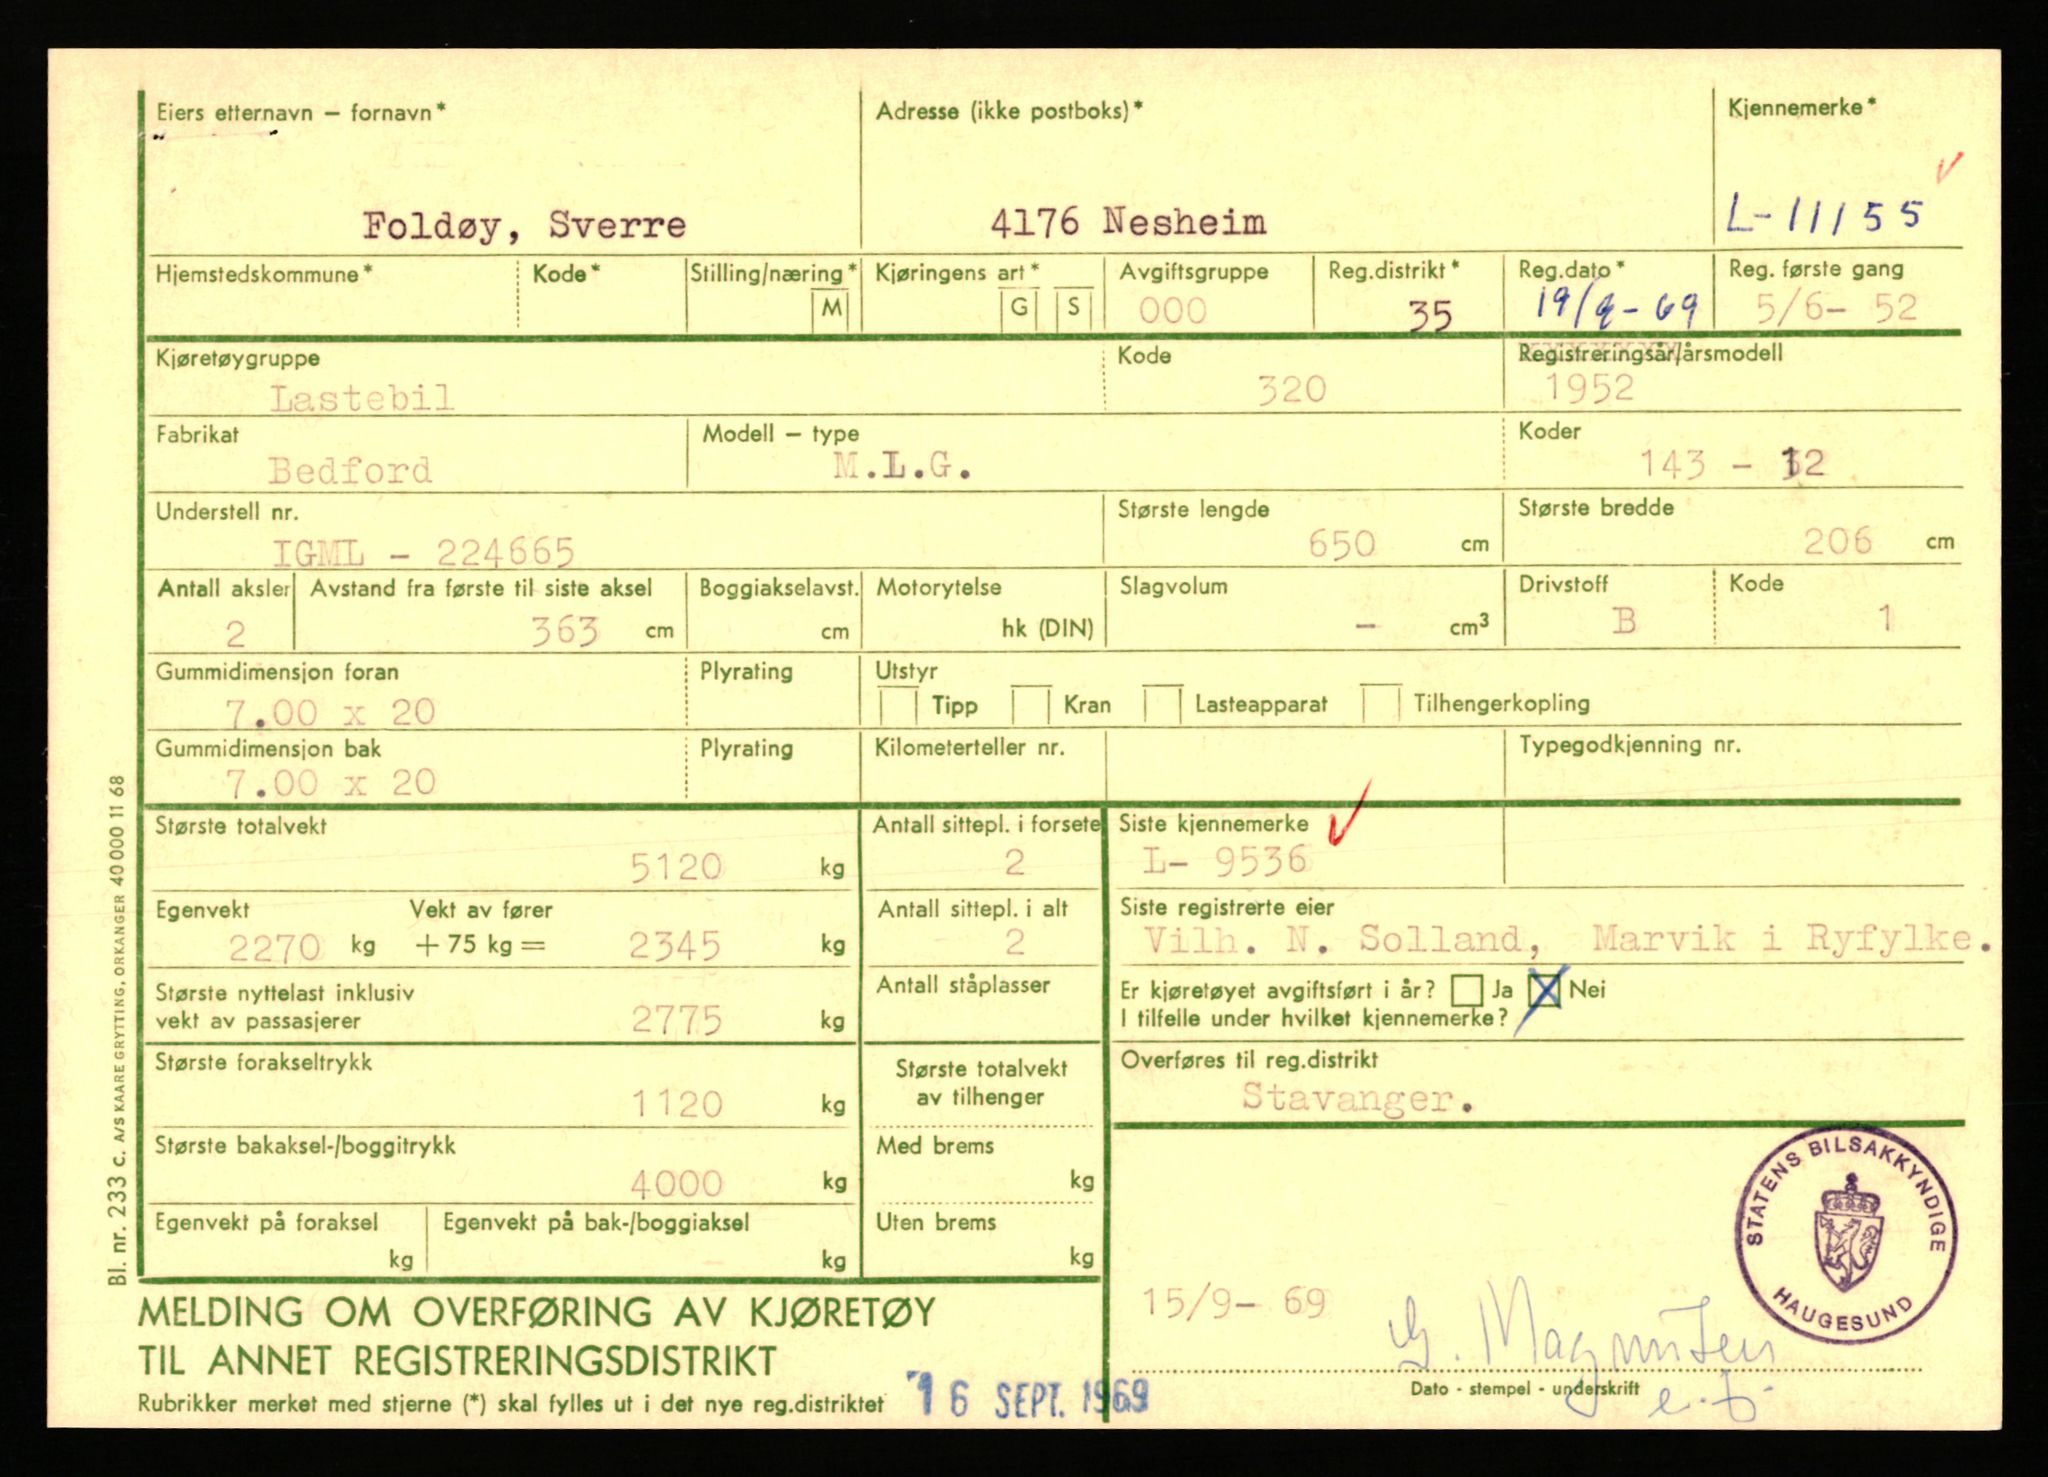 Eiers etternavn – fornavn* Adresse (ikke postboks)* Kjennemerke*
Foldøy, Sverre 4176 Nesheim L-11155
Hjemstedskommune* Kode* Stilling/næring* Kjøringens art* Avgiftsgruppe Reg.distrikt* Reg.dato* Reg. første gang
M G S 000 35 19/9-69 5/6- 52
Kjøretøygruppe Kode Registreringsår/årsmodell
Lastebil 320 1952
Fabrikat Modell – type Koder
Bedford M.L.G. 143 - 12
Understell nr. Største lengde Største bredde
IGML - 224665 650 cm 206 cm
Antall aksler Avstand fra første til siste aksel Boggiakselavst. Motorytelse Slagvolum Drivstoff Kode
2 363 cm cm hk (DIN) - cm³ B 1
Gummidimensjon foran Plyrating Utstyr
7.00 x 20 Tipp Kran Lasteapparat Tilhengerkopling
Gummidimensjon bak Plyrating Kilometerteller nr. Typegodkjenning nr.
7.00 x 20
Største totalvekt Antall sittepl. i forsete Siste kjennemerke
5120 kg 2 L- 9536
Egenvekt Vekt av fører Antall sittepl. i alt Siste registrerte eier
2270 kg + 75 kg = 2345 kg 2 Vilh. N. Solland, Marvik i Ryfylke.
Største nyttelast inklusiv Antall ståplasser Er kjøretøyet avgiftsført i år? Ja Nei
vekt av passasjerer 2775 kg I tilfelle under hvilket kjennemerke?
Største forakseltrykk Største totalvekt Overføres til reg.distrikt
1120 kg av tilhenger Stavanger.
Største bakaksel-/boggitrykk Med brems
4000 kg kg
Egenvekt på foraksel Egenvekt på bak-/boggiaksel Uten brems
kg kg kg
STATENS BILSAKKYNDIGE
HAUGESUND
MELDING OM OVERFØRING AV KJØRETØY
TIL ANNET REGISTRERINGSDISTRIKT
Rubrikker merket med stjerne (*) skal fylles ut i det nye reg.distriktet
16 SEPT. 1969
15/9- 69
G. Magnussen
Dato - stempel - underskrift
e.f.
Bl. nr. 233 C. A/S KAARE GRYTTING, ORKANGER 40 000 11 68